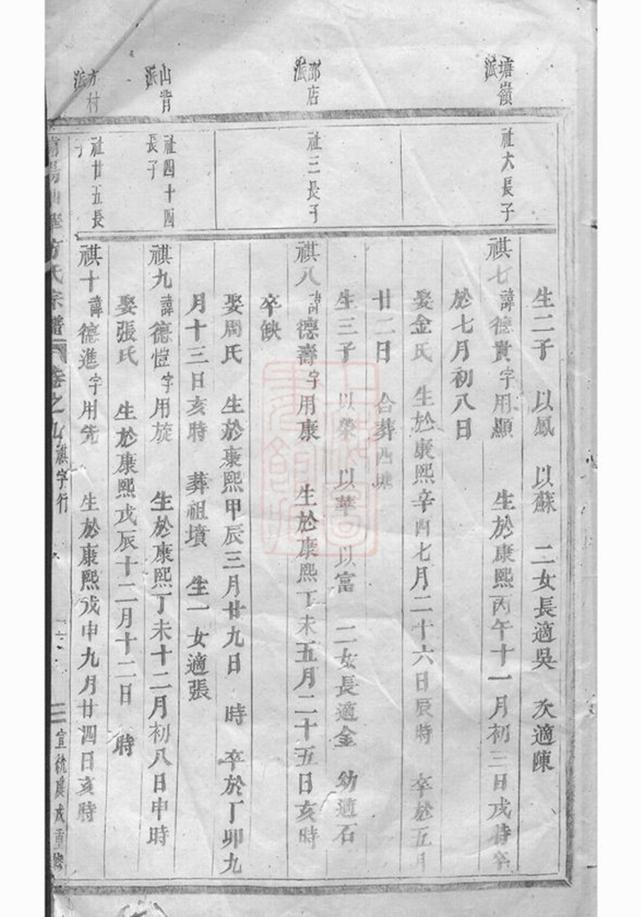 塘嶺派
社大長子
生二子 以鳳 以蘇 二女長適吳 次適陳
祺七 諱德貴字用顯 生於康熙丙午十一月初三日戌時卒
於七月初八日
娶金氏 生於康熙辛酉七月二十六日辰時 卒於五月
廿二日 合葬西
邵店派
社三長子
生三子 以榮 以華 以富 二女長適金 幼適石
祺八 諱德壽字用康 生於康熙丁未五月二十五日亥時
卒缺
娶周氏 生於康熙甲辰三月廿九日 時 卒於丁卯九
月十三日亥時 葬祖墳 生一女適張
山背派
社四十四長子
祺九 諱德愷字用旋 生於康熙丁未十二月初八日申時
娶張氏 生於康熙戊辰十二月十二日 時
方村派
社廿五長子
祺十 諱德進字用先 生於康熙戊申九月廿四日亥時
方氏宗譜 卷之 祺字行